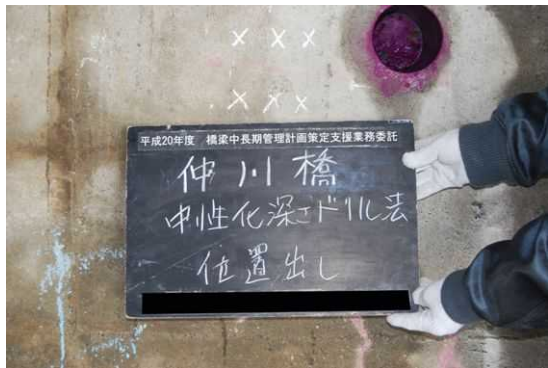 平成20年度 橋梁中長期管理計画策定支援業務委託
仲川橋
中性化深さドリル法
位置出し